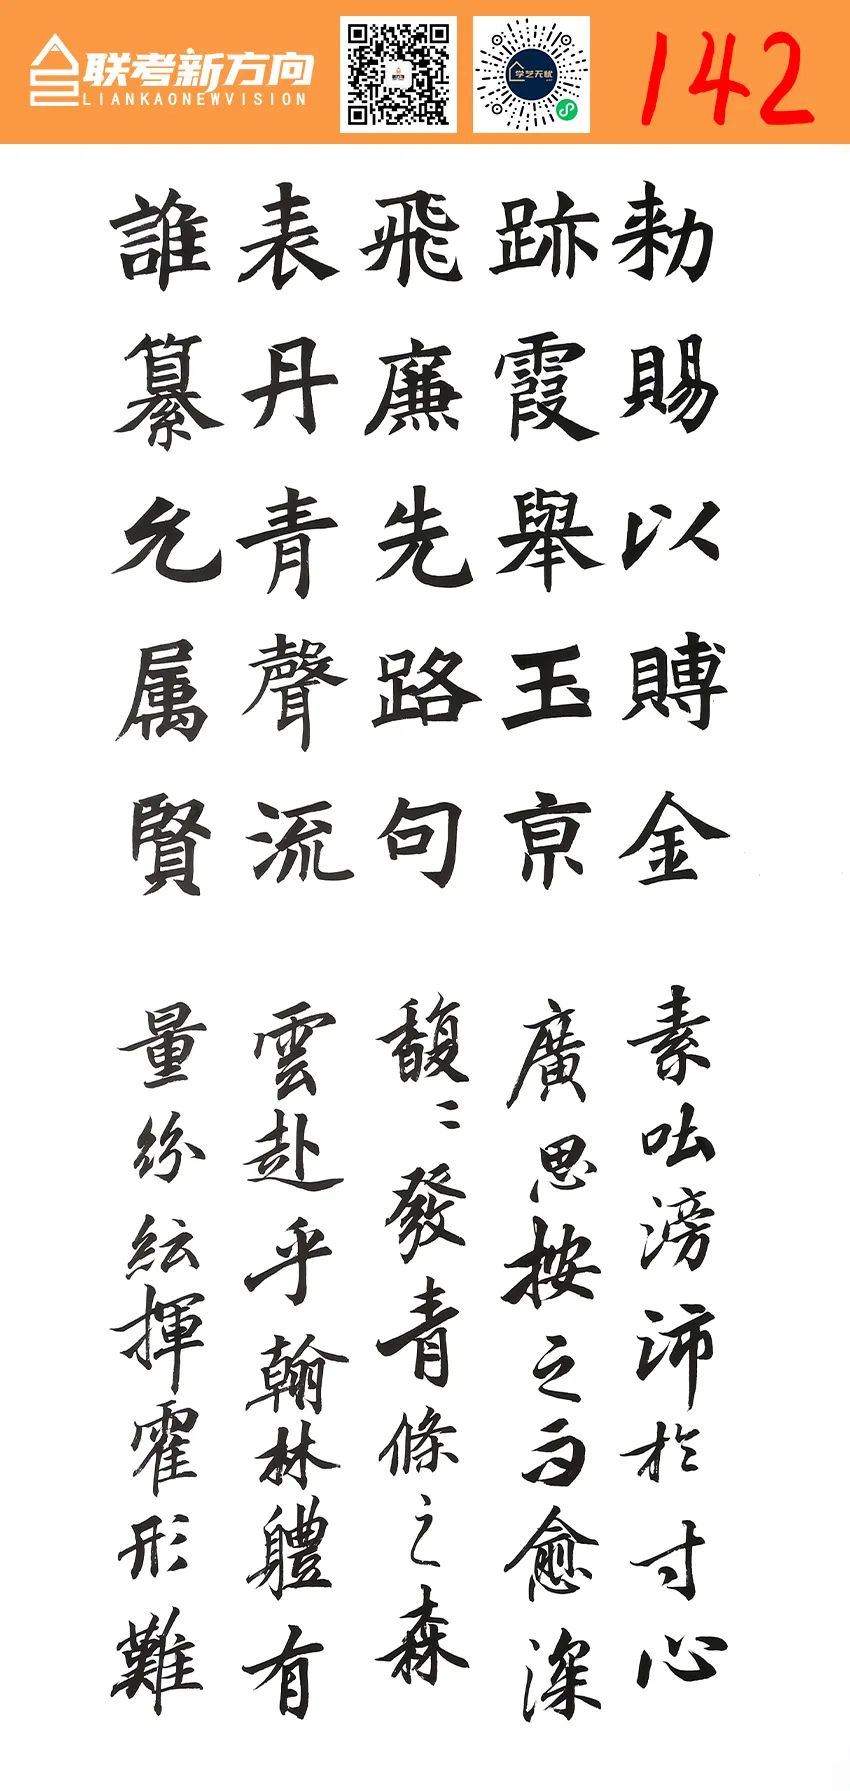 联考新方向
LIANKAONEWVISION
学艺无忧
142
勑賜以賻金
跡霞舉玉亰
飛廉先路句
表丹青聲流
誰纂允属賢
素吐滂沛於寸心
廣思按之而愈深
馥〻發青條之森
雲赴乎翰林軆有
量紛紜揮霍形難